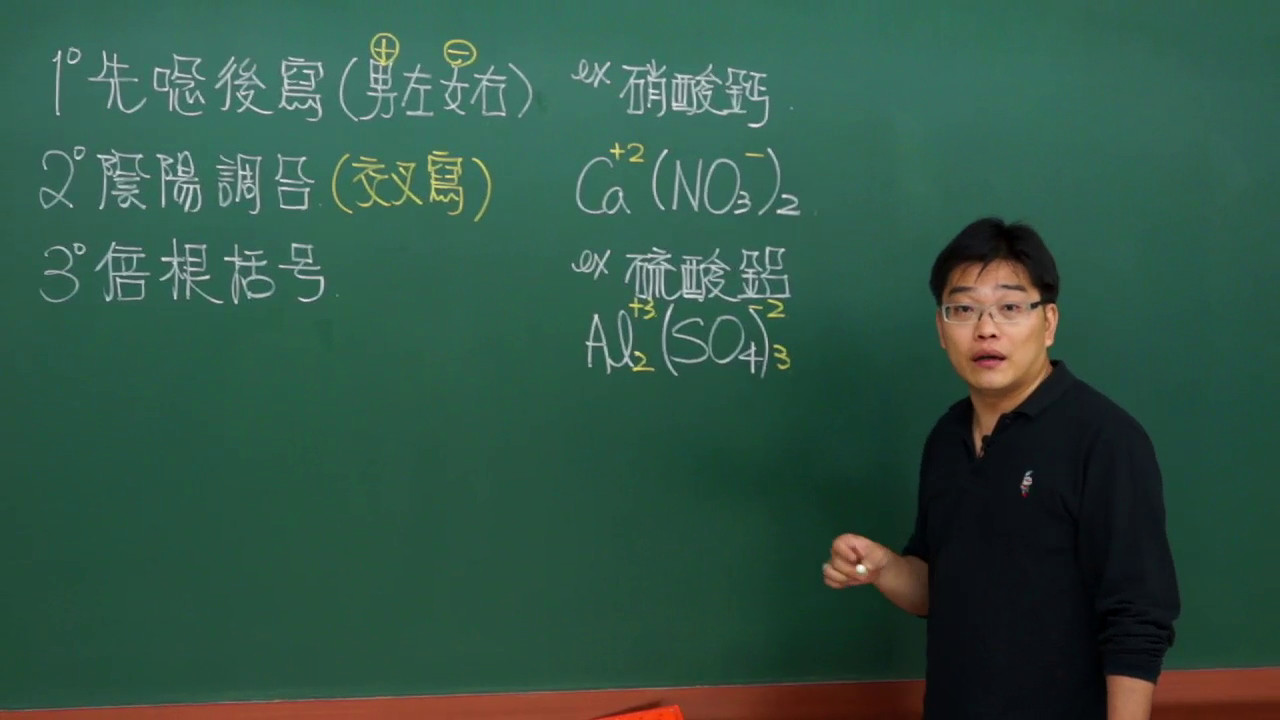 1° 先唸後寫(男左女右)
⊕ ⊖
2° 陰陽調合(交叉寫)
3° 倍根括号.
ex 硝酸鈣.
Ca⁺²(NO₃⁻)₂.
ex 硫酸鋁
Al₂⁺³(SO₄)₃⁻²